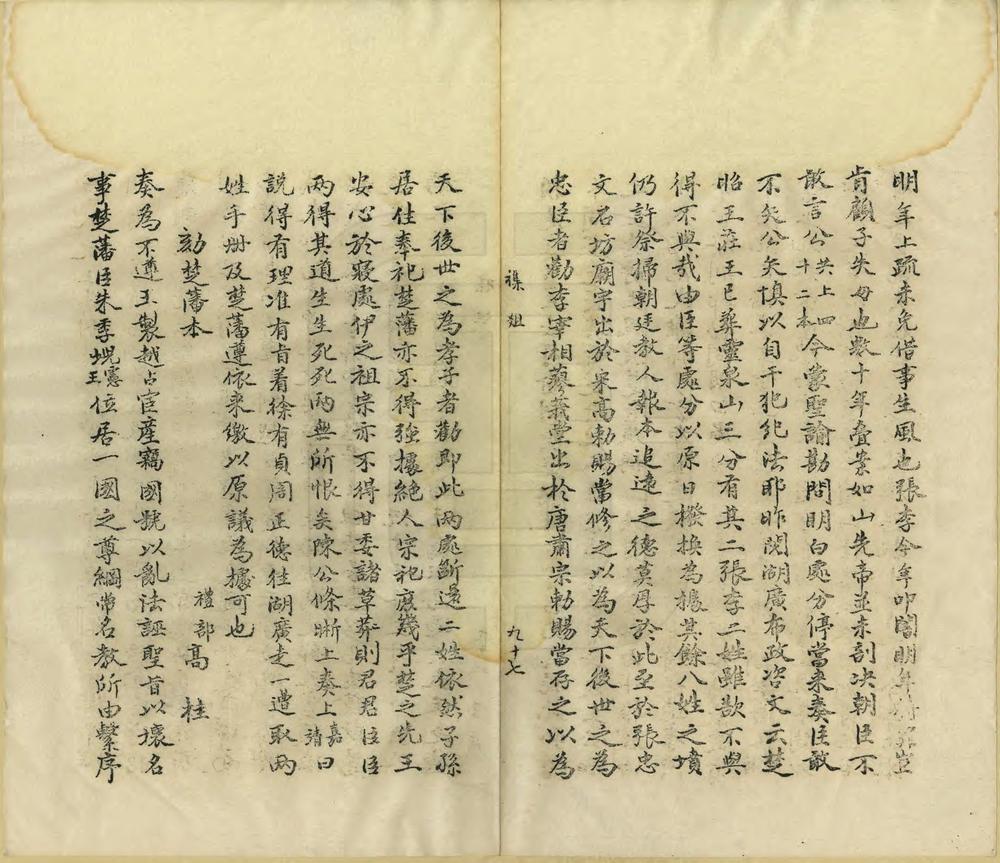 明年上疏未免借事生風也張李今年叩閽明年豈
肯顧子失母也數十年疊案如山先帝並未剖决朝臣不
敢言公共上四十二本今蒙聖諭勘問明白處分停當来奏臣敢
不矢公矢慎以自干犯纪法耶昨閱湖廣布政咨文云楚
昭王莊王已葬靈泉山三分有其二張李二姓雖欲不與
得不與哉由臣等處分以原日撥換為據其餘八姓之墳
仍許祭掃朝廷教人報本追遠之德莫厚於此至於張忠
文名坊廟宇出於宋高勅賜當修之以為天下後世之為
忠臣者勸李宰相藝義堂出於唐肅宗勅賜當存之以為
禩祖
九十七
天下後世之為孝子者勸即此兩處斷還二姓依然子孫
居住奉祀楚藩亦不得強據絶人宗祀庶幾乎楚之先王
安心於寝處伊之祖宗亦不得甘委諸草莽則君君臣臣
两得其道生生死死两無所恨矣陳公條晰上奏上嘉靖曰
説得有理准有旨着徐有貞周正德往湖廣走一遭取两
姓手册及楚藩遵依来繳以原議為據可也
劾楚藩本
禮部高桂
奏為不遵玉製越占宦産竊國號以亂法誣聖旨以壞名
事楚藩臣朱季堄憲王位居一國之尊綱常名教所由繫序